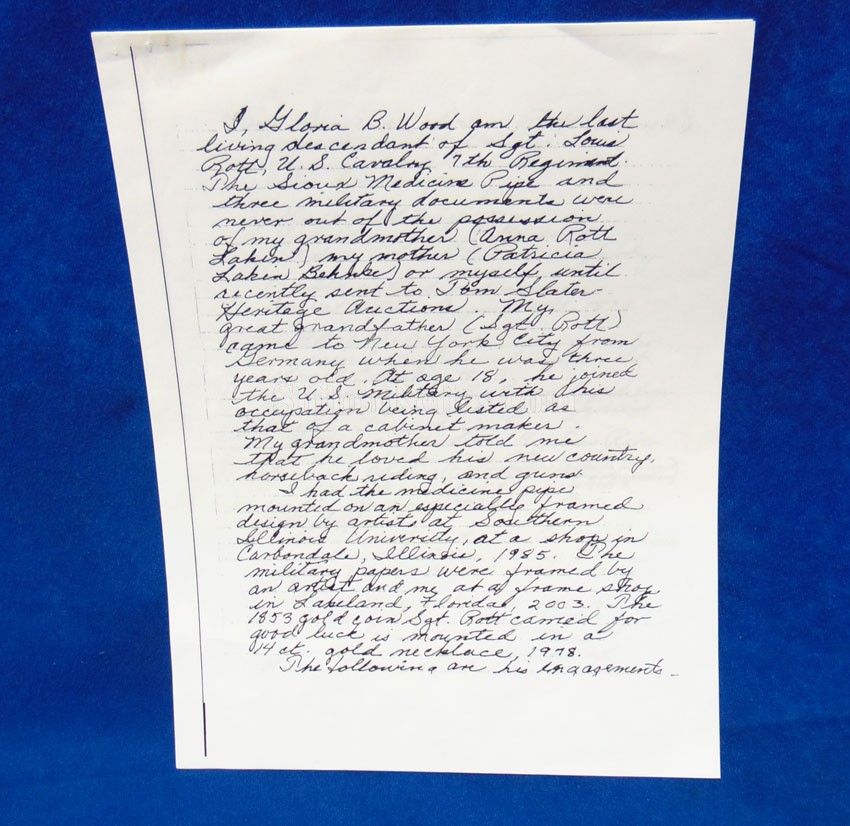 I, Gloria B. Wood am the last
living descendant of Sgt. Louis
Rott, U.S. Cavalry 7th Regiment.
The Sioux Medicine Pipe and
three military documents were
never out of the possession
of my grandmother (Anna Rott
Lakin) my mother (Patricia
Lakin Behnke) or myself until
recently sent to Tom Slater-
Heritage Auctions. My
great grandfather (Sgt. Rott)
came to New York City from
Germany when he was three
years old. At age 18, he joined
the U.S. Military with his
occupation being listed as
that of a cabinet maker.
My grandmother told me
that he loved his new country,
horseback riding, and guns.
I had the medicine pipe
mounted on an especially framed
design by artists at Southern
Illinois University, at a shop in
Carbondale, Illinois, 1985. The
military papers were framed by
an artist and me at a frame shop
in Lakeland, Florida, 2003. The
1853 gold coin Sgt. Rott carried for
good luck is mounted in a
14 ct. gold necklace, 1978.
The following are his engagements-